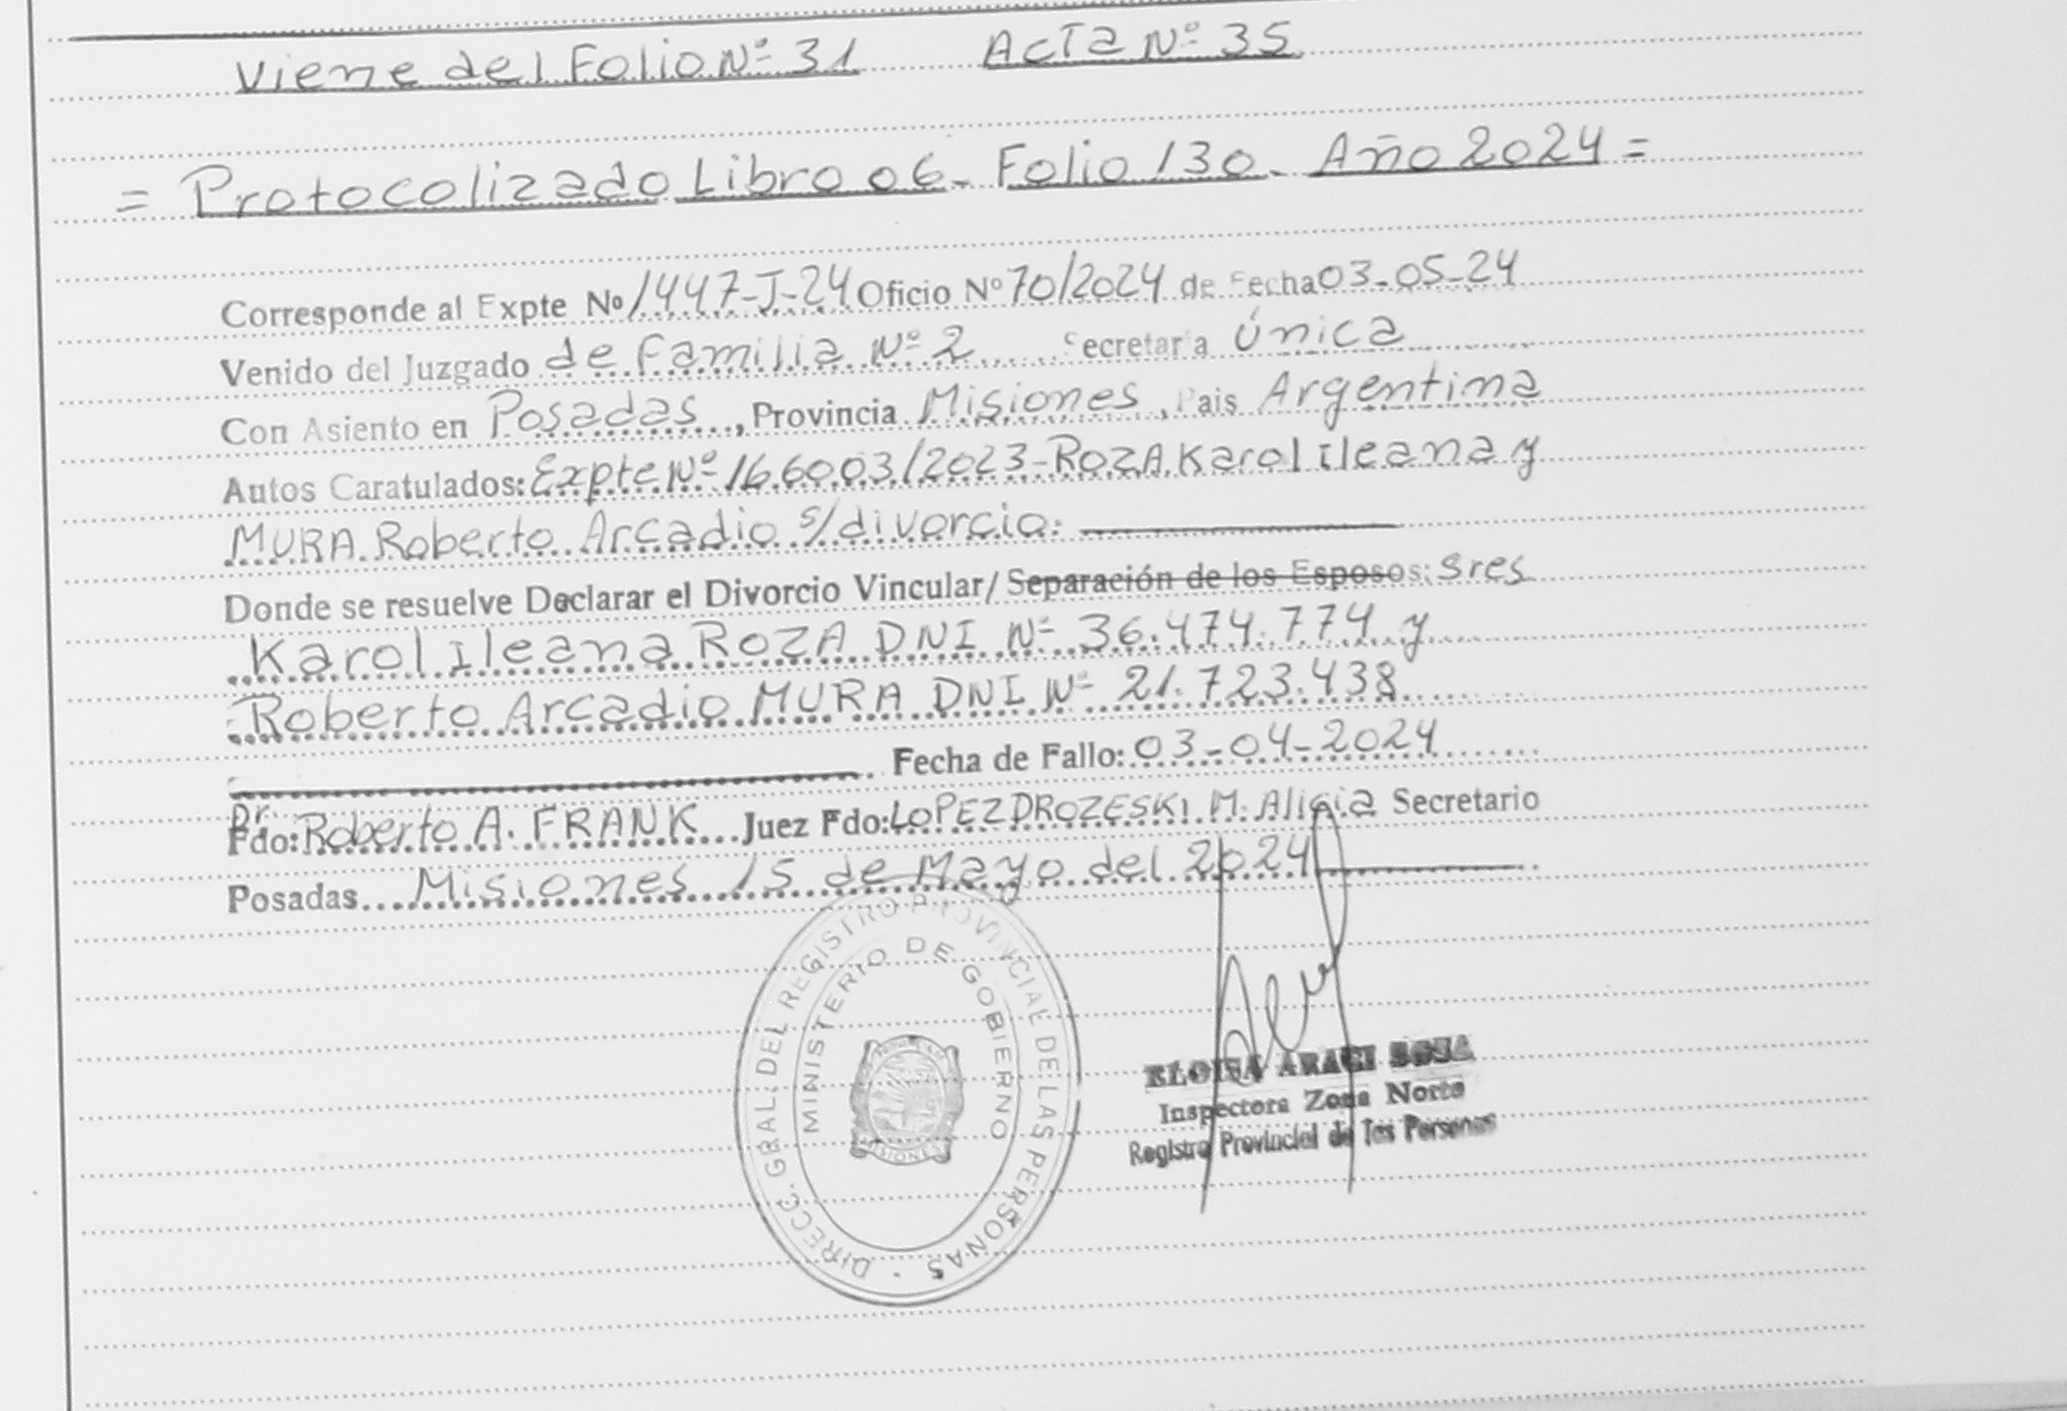 Viene del Folio Nº 31 Acta Nº 35
= Protocolizado Libro 06- Folio 130- Año 2024 =
Corresponde al Expte Nº 1447-J-24 Oficio Nº 70/2024 de Fecha 03-05-24
Venido del Juzgado de Familia Nº 2 Secretaria Única
Con Asiento en Posadas, Provincia Misiones, Pais Argentina
Autos Caratulados: Expte Nº 166003/2023-ROZA Karol Ileana y
MURA Roberto Arcadio s/divorcio.
Donde se resuelve Declarar el Divorcio Vincular/ Separación de los Esposos: Sres
Karol Ileana ROZA DNI Nº 36.474.774 y
Roberto Arcadio MURA DNI Nº 21.723.438
Fecha de Fallo: 03-04-2024
Dr.
Fdo: Roberto A. FRANK Juez Fdo: LOPEZ DROZESKI M. Alicia Secretario
Posadas Misiones 15 de Mayo del 2024
DIRECC. GRAL. DEL REGISTRO PROVINCIAL DE LAS PERSONAS
MINISTERIO DE GOBIERNO
MISIONES
ELOISA ARACI SOSA
Inspectora Zona Norte
Registro Provincial de las Personas